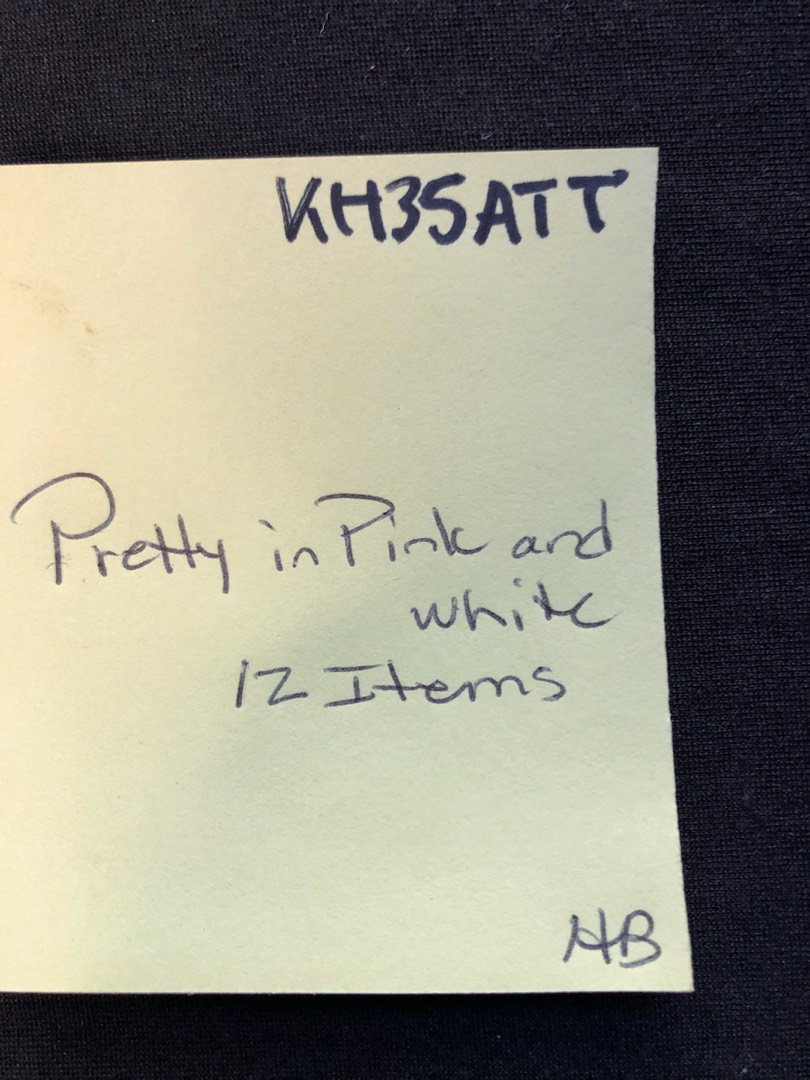 KH35ATT
Pretty in Pink and
white
12 Items
HB